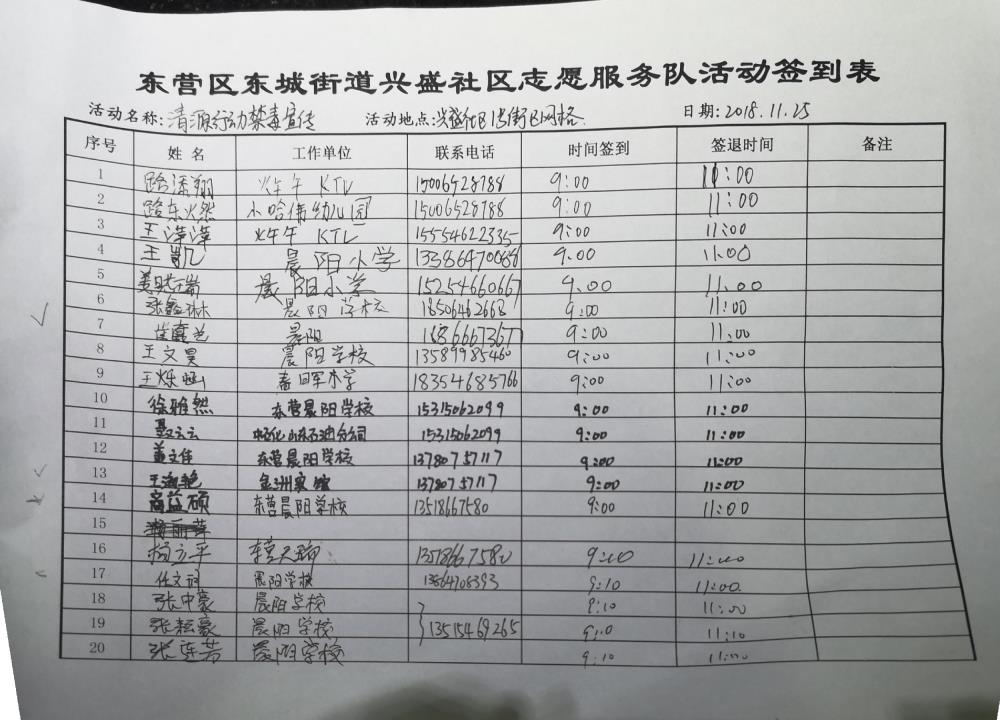 东营区东城街道兴盛社区志愿服务队活动签到表
活动名称:清源行动禁毒宣传 活动地点: 日期:2018.11.25
序号 姓名 工作单位 联系电话 时间签到 签退时间 备注
1 路添翔 火午午 KTV 15006528788 9:00 11:00
2 路东火然 小哈佛幼儿园 15006528788 9:00 11:00
3 王泽泽 火午午 KTV 15554622335 9:00 11:00
4 王凯 晨阳小学 13386470084 9:00 11:00
5 晨阳小学 15254660667 9:00 11:00
6 张鑫琳 晨阳学校 18506462668 9:00 11:00
7 晨阳 9:00 11:00
8 王文昊 晨阳学校 13589985460 9:00 11:00
9 王烁涵 18354685766 9:00 11:00
10 徐雅然 东营晨阳学校 15315062099 9:00 11:00
11 聂云云 中石化山东石油分公司 15315062099 9:00 11:00
12 董文佳 东营晨阳学校 13780757117 9:00 11:00
13 王海艳 金洲 13780757117 9:00 11:00
14 高益硕 东营晨阳学校 13518667580 9:00 11:00
15
16 杨立平 13518667580 9:00 11:00
17 任文词 晨阳学校 13864708393 9:10 11:00
18 张中豪 晨阳学校 9:10 11:00
19 张耘豪 晨阳学校 13515469265 9:10 11:10
20 张连芳 晨阳学校 9:10 11:00